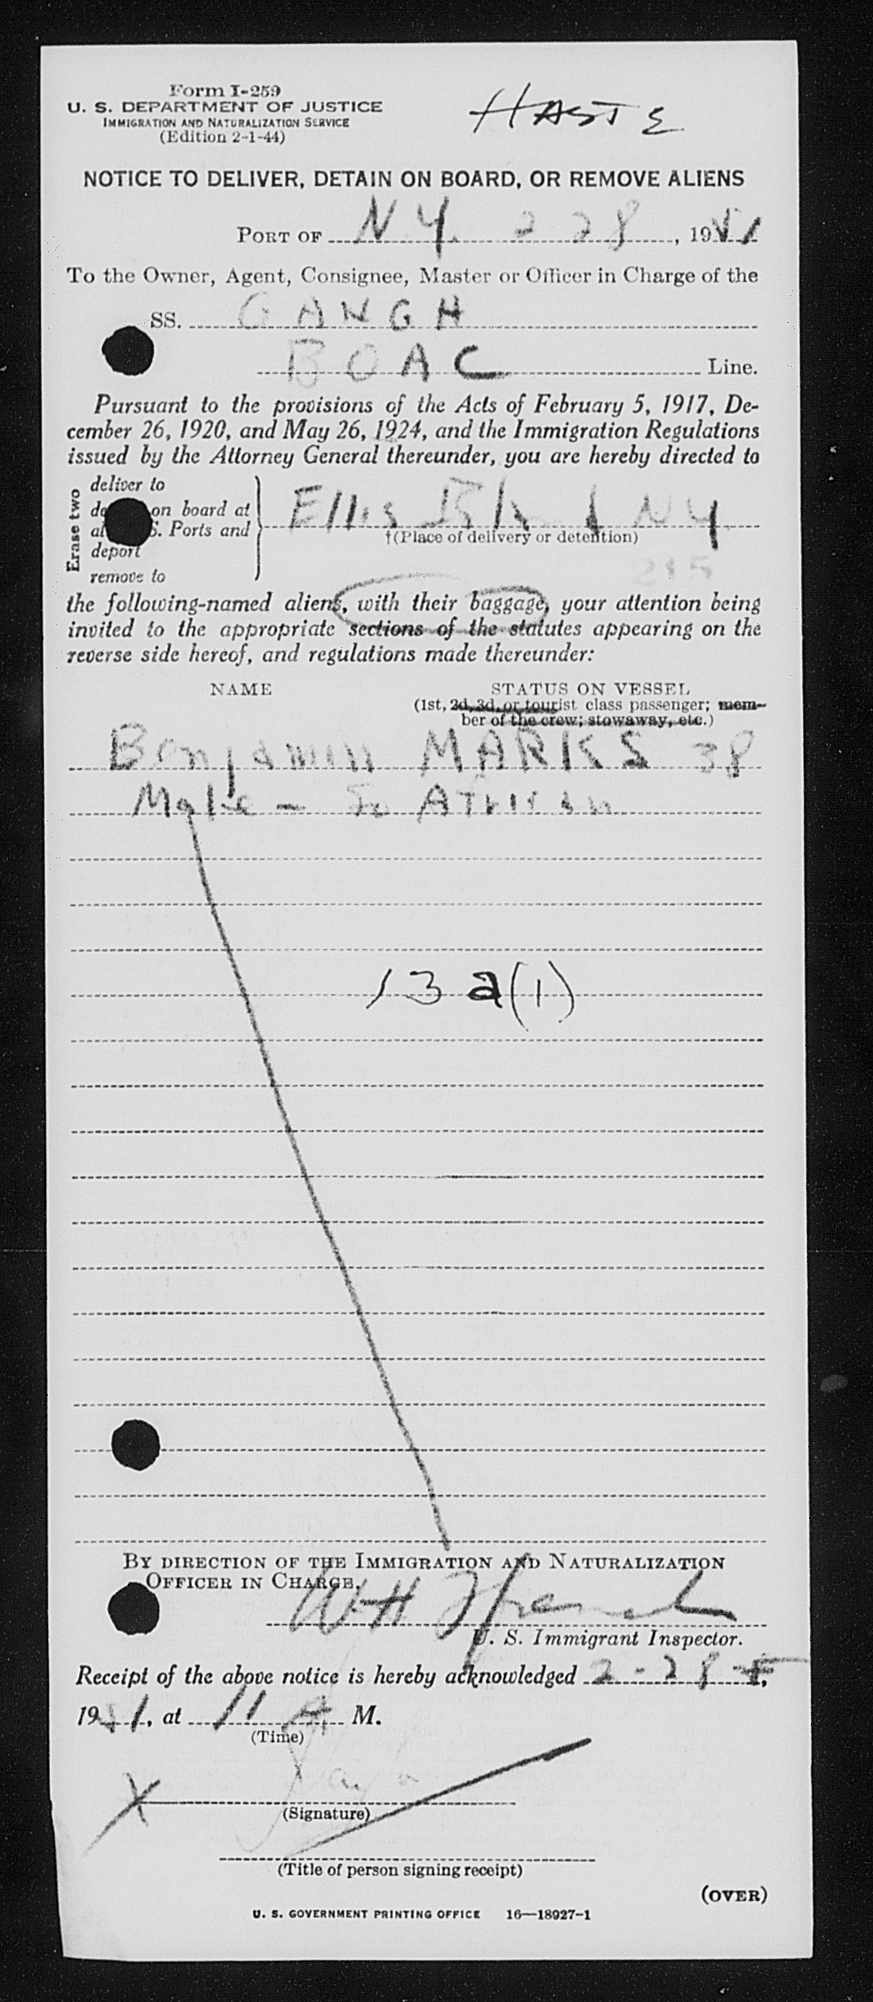 Form I-259
U. S. DEPARTMENT OF JUSTICE
IMMIGRATION AND NATURALIZATION SERVICE
(Edition 2-1-44)
HASTE
NOTICE TO DELIVER, DETAIN ON BOARD, OR REMOVE ALIENS
PORT OF N Y. 2 28, 1951
To the Owner, Agent, Consignee, Master or Officer in Charge of the
SS. GANGH
BOAC Line.
Pursuant to the provisions of the Acts of February 5, 1917, De-
cember 26, 1920, and May 26, 1924, and the Immigration Regulations
issued by the Attorney General thereunder, you are hereby directed to
Erase two
deliver to
on board at
S. Ports and
deport
remove to
Ellis Island NY
†(Place of delivery or detention)
215
the following-named aliens, with their baggage, your attention being
invited to the appropriate sections of the statutes appearing on the
reverse side hereof, and regulations made thereunder:
NAME STATUS ON VESSEL
(1st, 2d, 3d, or tourist class passenger; mem-
ber of the crew; stowaway, etc.)
Benjamin MARKS 38
Male - So African
13 a(1)
BY DIRECTION OF THE IMMIGRATION AND NATURALIZATION
OFFICER IN CHARGE,
WH
U. S. Immigrant Inspector.
Receipt of the above notice is hereby acknowledged 2-28,
1951, at 11 A M.
(Time)
X
(Signature)
(Title of person signing receipt)
(OVER)
U. S. GOVERNMENT PRINTING OFFICE 16—18927-1